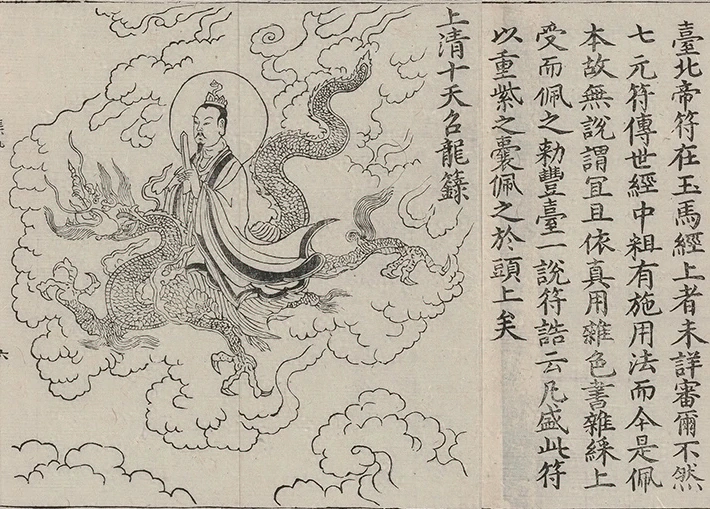 臺北帝符在玉馬經上者未詳審爾不然
七元符傳世經中粗有施用法而今是佩
本故無說謂冝且依真用雜色書雜綵上
受而佩之勑豐臺一說符誥云凡盛此符
以重紫之囊佩之於頭上矣
上清十天召龍籙
六